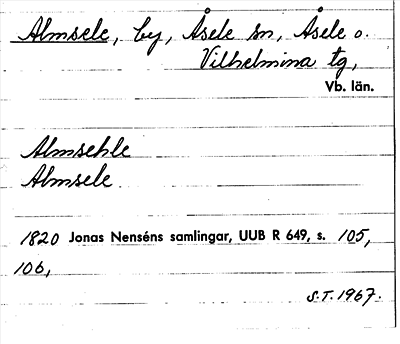 Almsele, by, Åsele sn, Åsele o.
Vilhelmina tg,
Vb. län.
Almsehle
Almsele
1820 Jonas Nenséns samlingar, UUB R 649, s. 105,
106,
S.T. 1967.